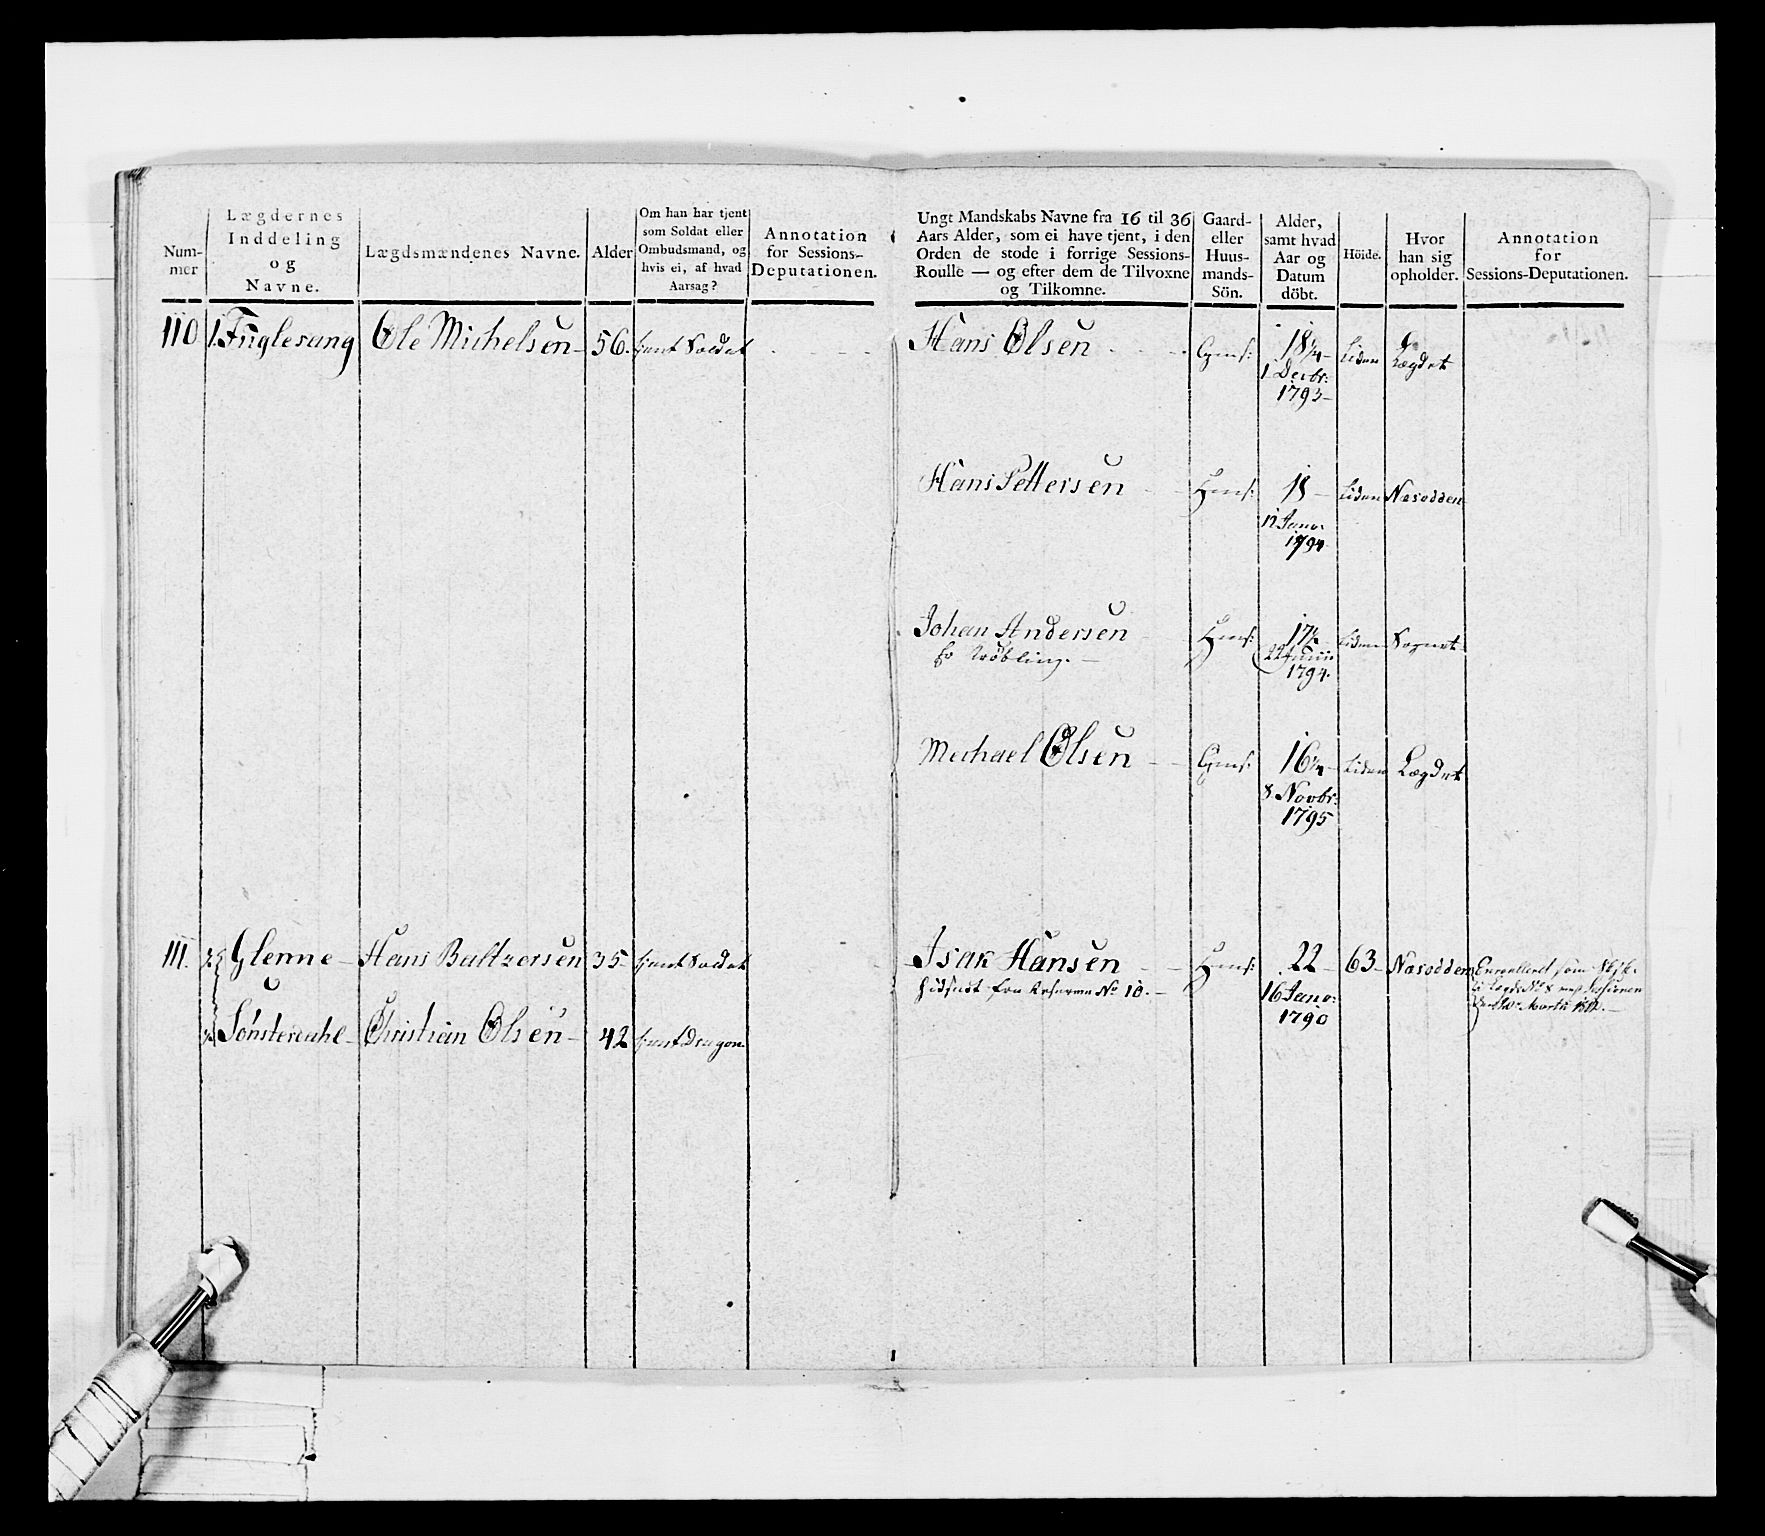 Num-
mer
Lægdernes
Inddeling
og
Navne.
Lægdsmændenes Navne.
Alder
Om han har tjent
som Soldat eller
Ombudsmand, og
hvis ei, af hvad
Aarsag?
Annotation
for Sessions-
Deputationen.
Ungt Mandskabs Navne fra 16 til 36
Aars Alder, som ei have tjent, i den
Orden de stode i forrige Sessions-
Roulle — og efter dem de Tilvoxne
og Tilkomne.
Gaard-
eller
Huus-
mands-
Sön.
Alder,
samt hvad
Aar og
Datum
döbt.
Höide.
Hvor
han sig
opholder.
Annotation
for
Sessions-Deputationen.
110 1. Fuglesang Ole Michelsen 56. tjent Soldat
Hans Olsen Gms: 18¼ Liden Lægdet
1 Decbr:
1793
Hans Pettersen Hms: 18 Liden Nesodden
12 Janv:
1794
Johan Andersen Hms: 17½ Liden Sognet
22 Junii
1794.
Michael Olsen Gms: 16¼ Liden Lægdet
8 Novbr:
1795
111. Glenne Hans Baltzersen 35 tjent Soldat
Sønsterdahl Christian Olsen 42 tjent Dragon
Isak Hansen Hms: 22 63 Nesodden
fra No 10.
16 Janv:
1790
Enrolleret som